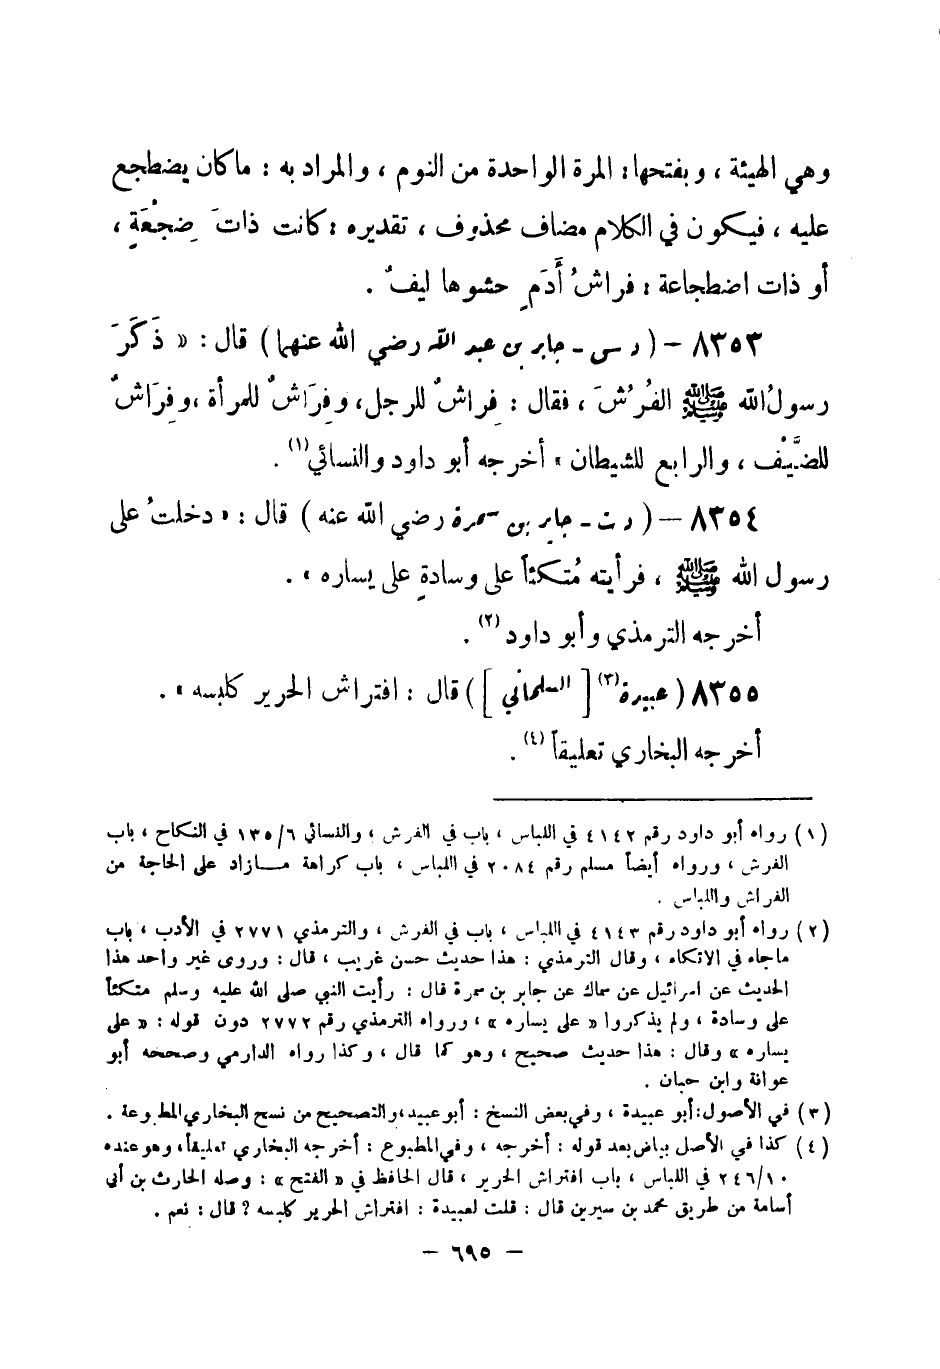 وهي الهيئة ، وبفتحها : المرة الواحدة من النوم ، والمراد به : ما كان يضطجع
عليه ، فيكون في الكلام مضاف محذوف ، تقديره : كانت ذاتَ ضِجْعَةٍ ،
أو ذات اضطجاعة : فراشُ أَدَمٍ حشوها ليفٌ .
٨٣٥٣ – ( د س - جابر بن عبد الله رضي الله عنهما ) قال : « ذَكَرَ
رسولُ الله ﷺ الفُرُشَ ، فقال : فِراشٌ للرجل ، وفِرَاشٌ للمرأة ، وفِرَاشٌ
للضَّيْف ، والرابع للشيطان » أخرجه أبو داود والنسائي (١) .
٨٣٥٤ – ( د ت - جابر بن سمرة رضي الله عنه ) قال : « دخلتُ على
رسول الله ﷺ ، فرأيته مُتكئاً على وسادةٍ على يساره » .
أخرجه الترمذي وأبو داود (٢) .
٨٣٥٥ ( عبيدة (٣) [ السلماني ] ) قال : افتراش الحرير كلبسه » .
أخرجه البخاري تعليقاً (٤) .
(١) رواه أبو داود رقم ٤١٤٢ في اللباس ، باب في الفرش ، والنسائي ٦/١٣٥ في النكاح ، باب
الفرش ، ورواه أيضاً مسلم رقم ٢٠٨٤ في اللباس ، باب كراهة مازاد على الحاجة من
الفراش واللباس .
(٢) رواه أبو داود رقم ٤١٤٣ في اللباس ، باب في الفرش ، والترمذي ٢٧٧١ في الأدب ، باب
ماجاء في الاتكاء ، وقال الترمذي : هذا حديث حسن غريب ، قال : وروى غير واحد هذا
الحديث عن اسرائيل عن سماك عن جابر بن سمرة قال : رأيت النبي صلى الله عليه وسلم متكئاً
على وسادة ، ولم يذكروا « على يساره » ، ورواه الترمذي رقم ٢٧٧٢ دون قوله : « على
يساره » وقال : هذا حديث صحيح ، وهو كما قال ، وكذا رواه الدارمي وصححه أبو
عوانة وابن حبان .
(٣) في الأصول : أبو عبيدة ، وفي بعض النسخ : أبو عبيد ، والتصحيح من نسخ البخاري المطبوعة .
(٤) كذا في الأصل بياض بعد قوله : أخرجه ، وفي المطبوع : أخرجه البخاري تعليقاً ، وهو عنده
١٠/٢٤٦ في اللباس ، باب افتراش الحرير ، قال الحافظ في « الفتح » : وصله الحارث بن أبي
أسامة من طريق محمد بن سيرين قال : قلت لعبيدة : افتراش الحرير كلبسه ؟ قال : نعم .
– ٦٩٥ –